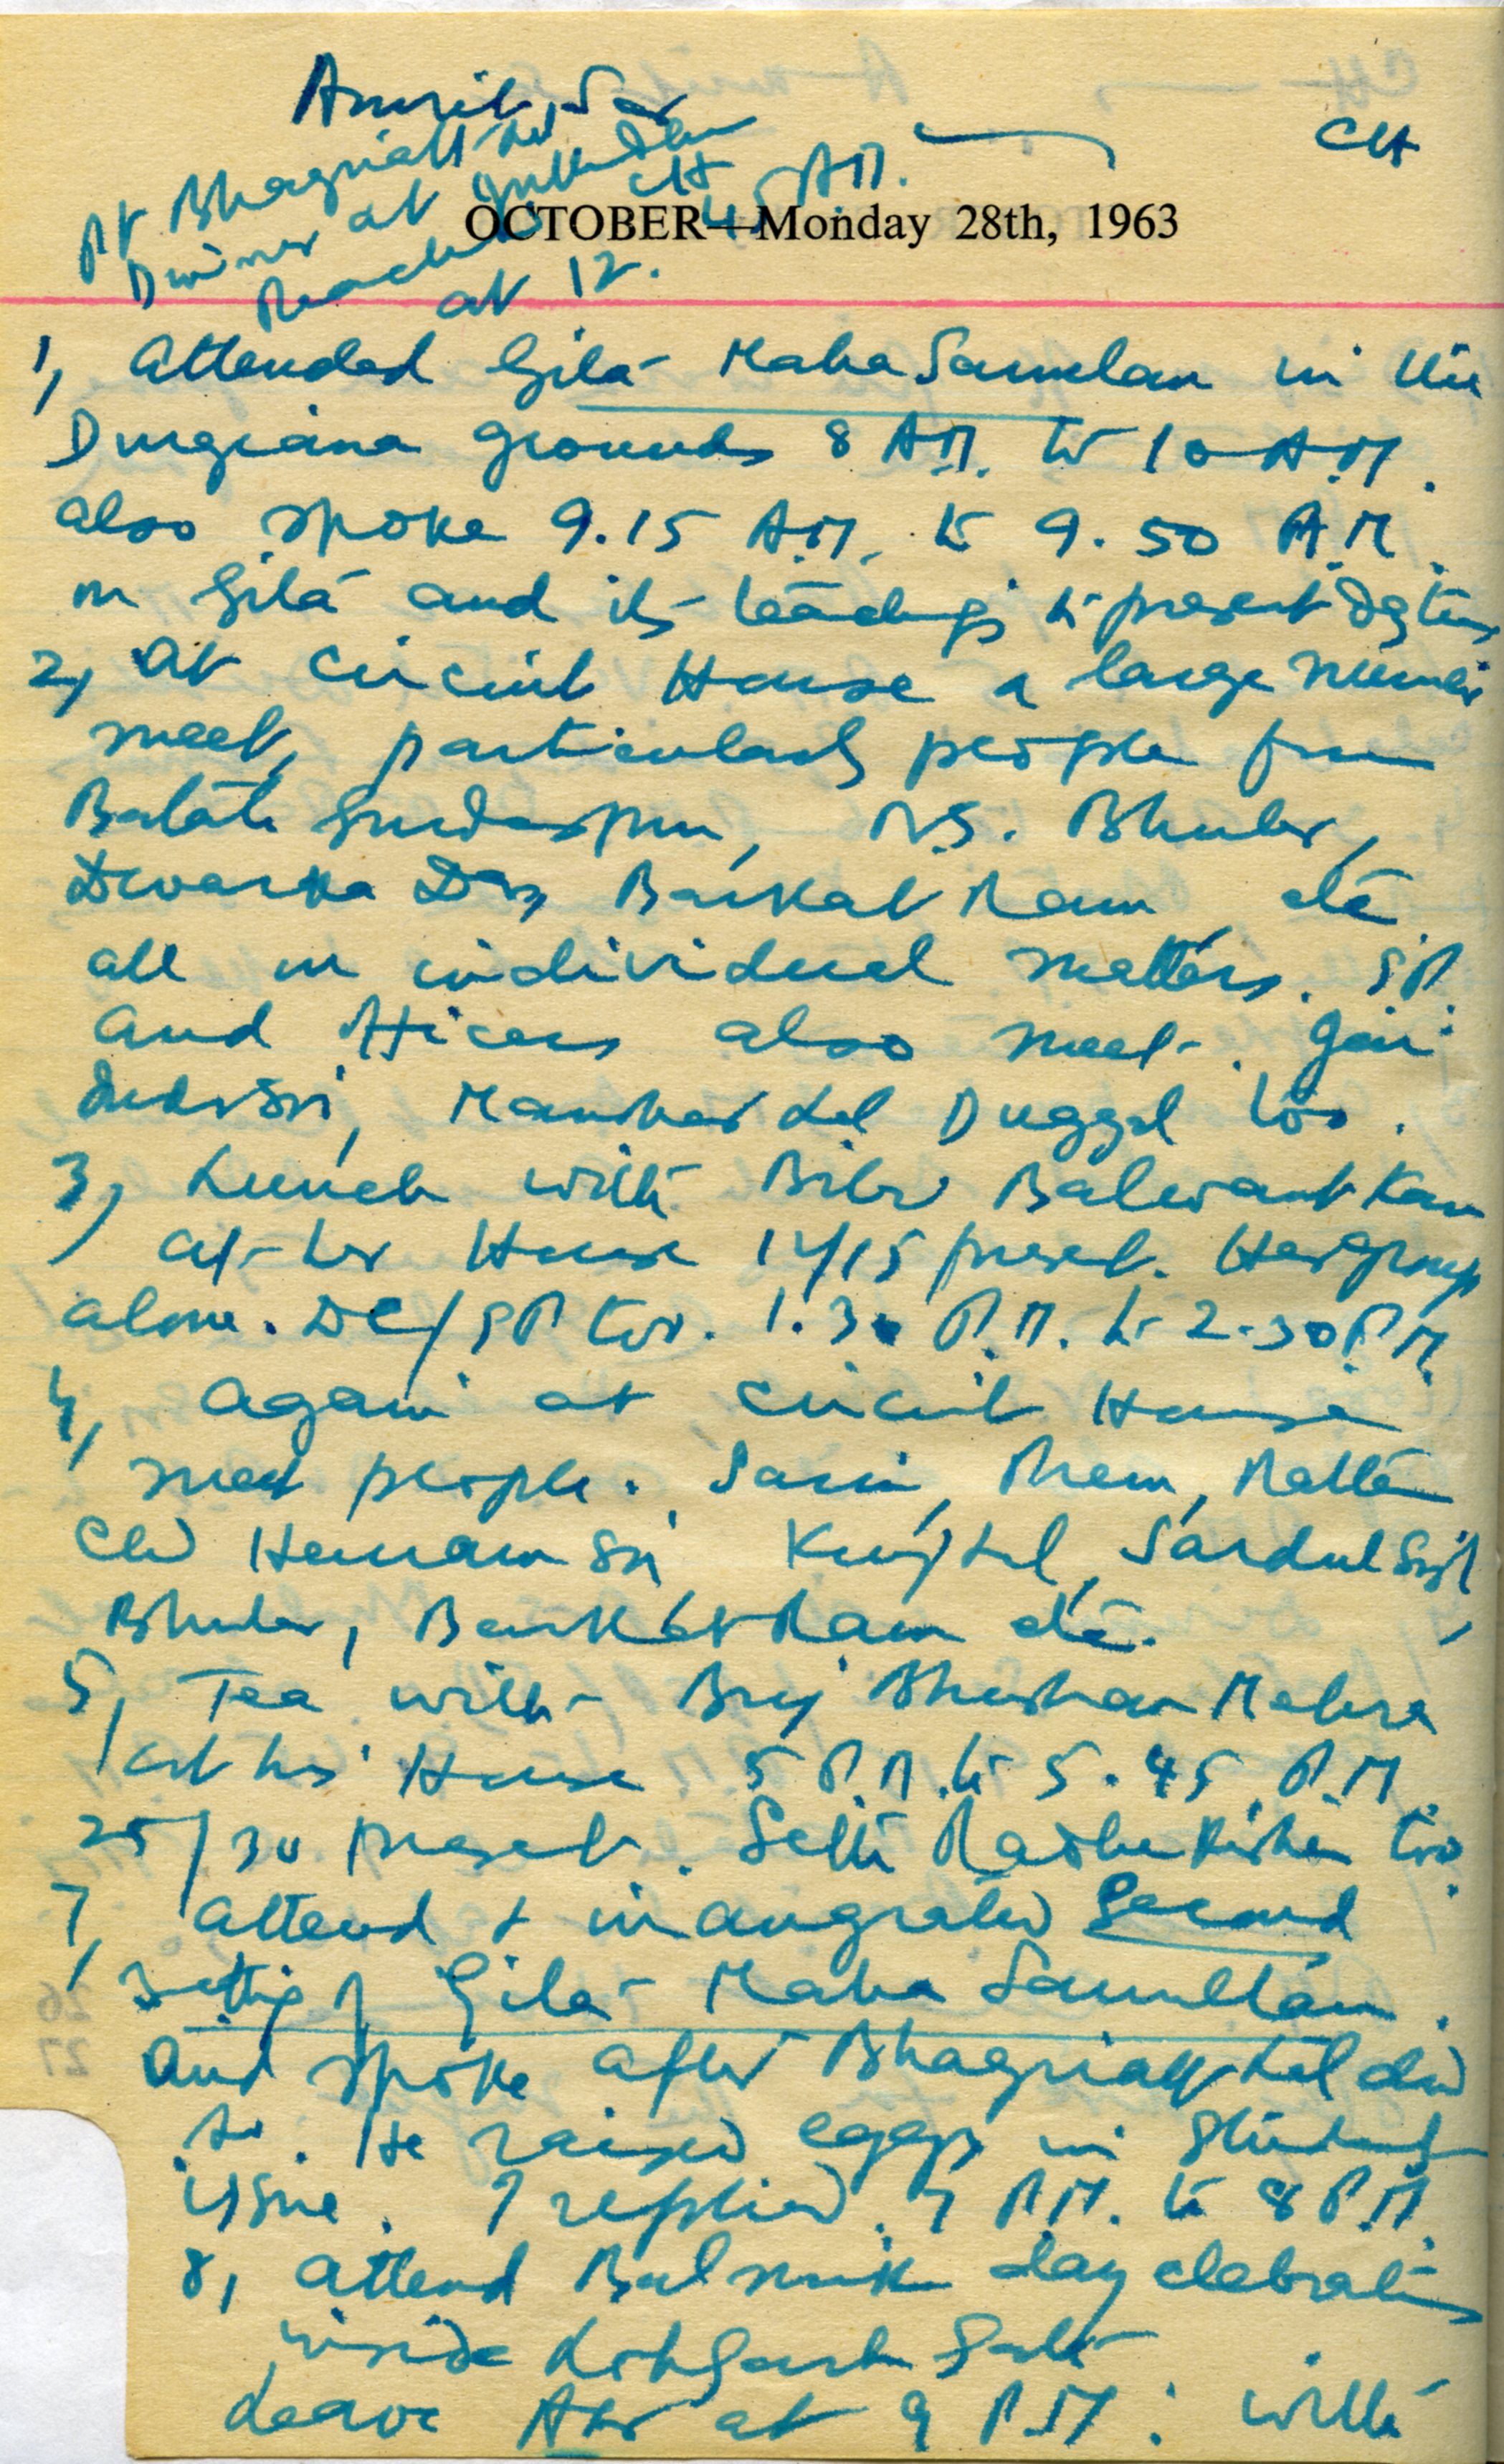 Amrit Sar
CH
Pt Bhagriath Lal
Dinner at Jullundur
Reached CH
at 12. 45 AM.
OCTOBER—Monday 28th, 1963
1, Attended Gita Maha Samelan in the
Durgiana grounds 8 A.M. to 10 A.M.
also spoke 9.15 A.M. to 9.50 A.M.
on Gita and its teachings to present day times
2, At Circuit House a large number
meet, particularly people from
Batala Gurdaspur, S. Bhuler,
Dwarka Das, Barkat Ram, etc
all on individual matters. S.P.
and Officers also meet. Giani
Manohar Lal Duggal too.
3, Lunch with Bibi Balwant Kaur
at her House 14/15 present. Her group
alone. DC/SP too. 1.30 P.M. to 2.30 P.M.
4, Again at Circuit House
meet people. Saini, Prem, Rattan
Chd Harnam Sn Kunj Lal, Sardul Singh
Bhuler, Barkat Ram etc.
5, Tea with Brij Bhushan Mehra
at his House 5 P.M. to 5.45 P.M.
25/30 present. Seth Radhe Kishen too.
7, Attend & inaugrated Second
Sitting of Gita Maha Samellan.
and spoke after Bhagriath Lal did
so. He raised eggs in Students
issue. I replied. 7 P.M. to 8 P.M.
8, Attend Balmik day celebrations
inside LohGarh Gate
Leave Asr at 9 P.M: with